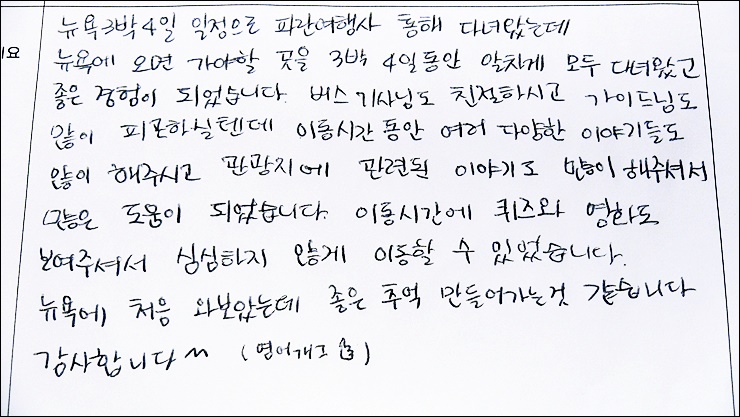 뉴욕 3박 4일 일정으로 파란여행사 통해 다녀왔는데
뉴욕에 오면 가야할 곳을 3박 4일동안 알차게 모두 다녀왔고
좋은 경험이 되었습니다. 버스 기사님도 친절하시고 가이드님도
많이 피곤하실텐데 이동시간 동안 여러 다양한 이야기들도
많이 해주시고 관광지에 관련된 이야기도 많이 해주셔서
많은 도움이 되었습니다. 이동시간에 퀴즈와 영화도
보여주셔서 심심하지 않게 이동할 수 있었습니다.
뉴욕에 처음 와보았는데 좋은 추억 만들어가는것 같습니다
감사합니다 ^^ (영어개그 👍)
요